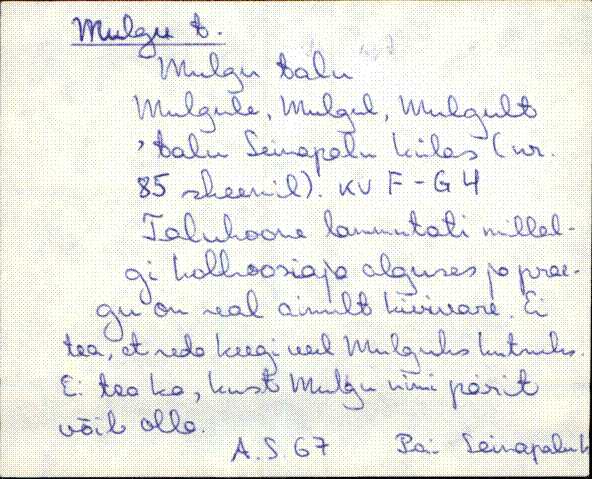 Mulgu t.
Mulgu talu
Mulgule, Mulgul, Mulgult
, talu Seinapalu külas (nr.
85 skeemil). KV F-G 4
Taluhoone lammutati millal-
gi kolhoosiaja alguses ja prae-
gu on seal ainult kivivare. Ei
tea, et seda keegi veel Mulguks kutsuks.
Ei tea ka, kust Mulgu nimi pärit
võib olla.
A.S. 67 Pai Seinapalu k